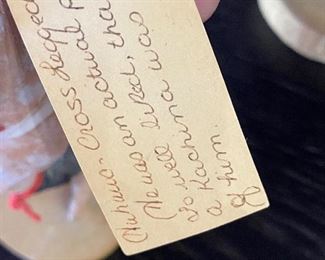 Huhuwa - Cross Legged
He was an actual p
so well liked, tha
a Kachina was
of him.